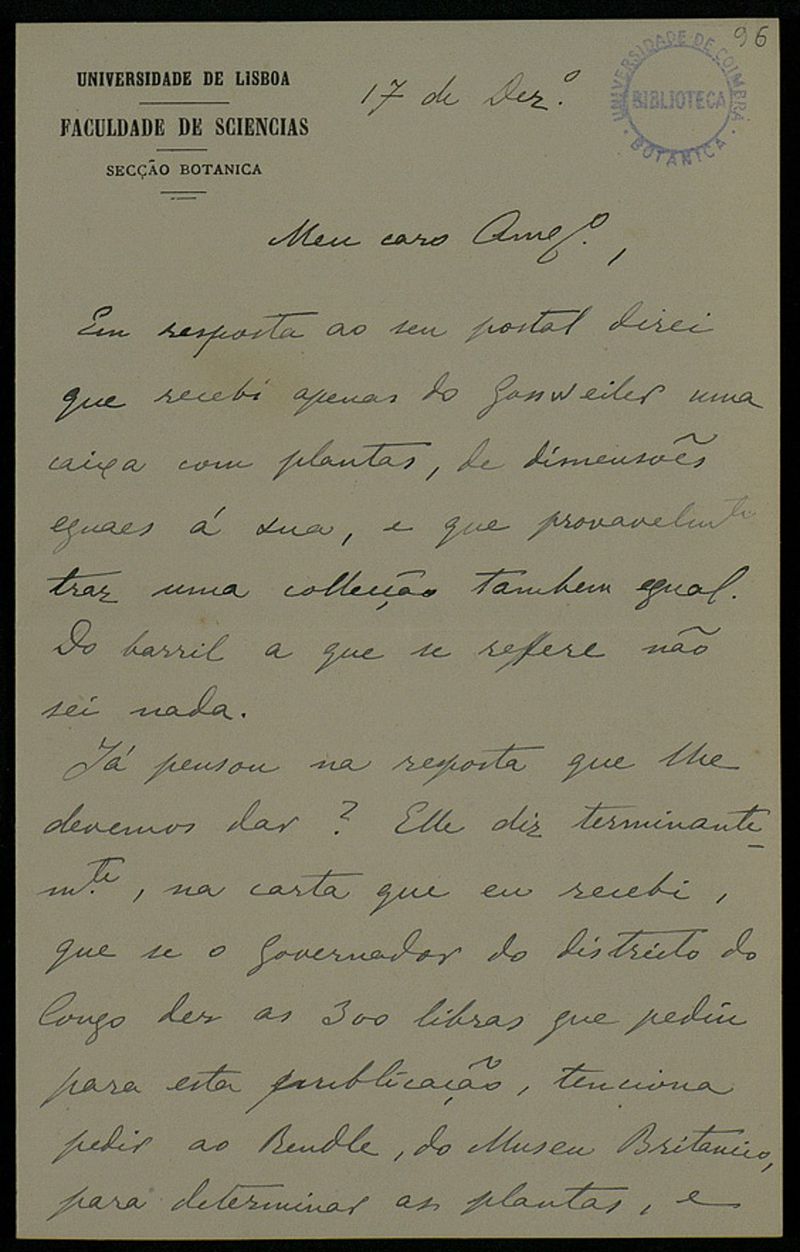 96
UNIVERSIDADE DE LISBOA
FACULDADE DE SCIENCIAS
SECÇÃO BOTANICA
UNIVERSIDADE DE COIMBRA
BIBLIOTECA
BOTANICA
17 de Dezº.
Meu caro Amgº.,
Em resposta ao seu postal direi
que recebi apenas do Gossweiler uma
caixa com plantas, de dimensões
eguaes á sua, e que provavelmte
traz uma collecção tambem egual.
Do barril a que se refere não
sei nada.
Já pensou na resposta que lhe
devemos dar? Elle diz terminante-
mte, na carta que eu recebi,
que se o Governador do districto do
Congo der as 300 libras que pediu
para esta publicação, tenciona
pedir ao Rendle, do Museu Britanico,
para determinar as plantas, e